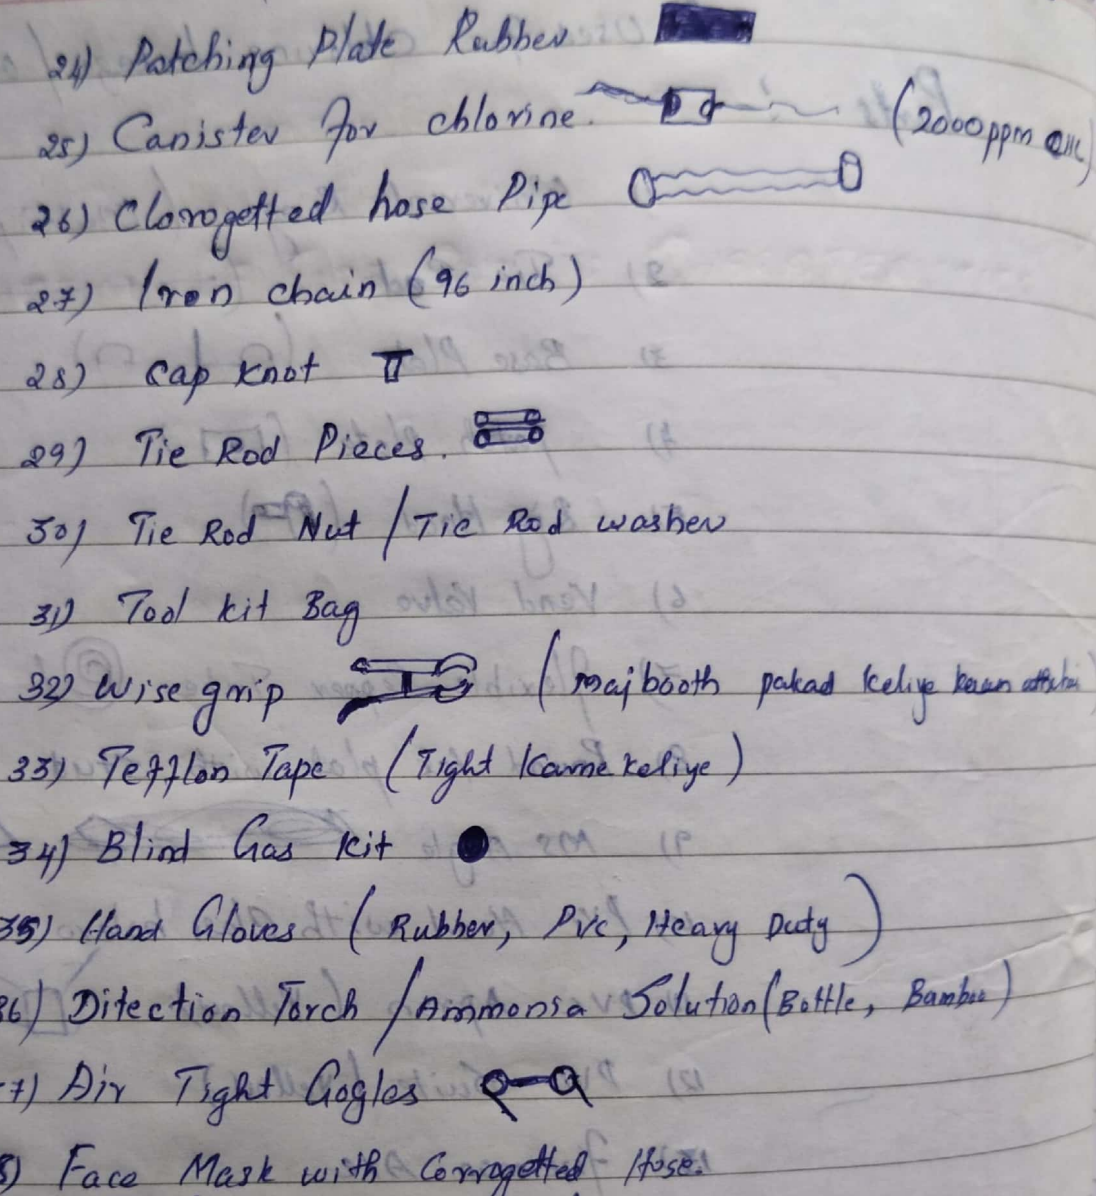 24) Patching Plate Rubber
25) Canister for chlorine. (2000 ppm
26) Clorogetted hose Pipe
27) Iron chain (96 inch)
28) Cap Knot
29) Tie Rod Pieces.
30) Tie Rod Nut / Tie Rod washer
31) Tool kit Bag
32) Wise grip (majbooth pakad keliye
33) Tefflon Tape (Tight Karne keliye)
34) Blind Gas Kit
35) Hand Gloves (Rubber, Pvc, Heavy Duty)
36) Ditection Torch / Ammonia Solution (Bottle, Bamboo)
7) Air Tight Gogles
8) Face Mask with Corrogetted Hose.